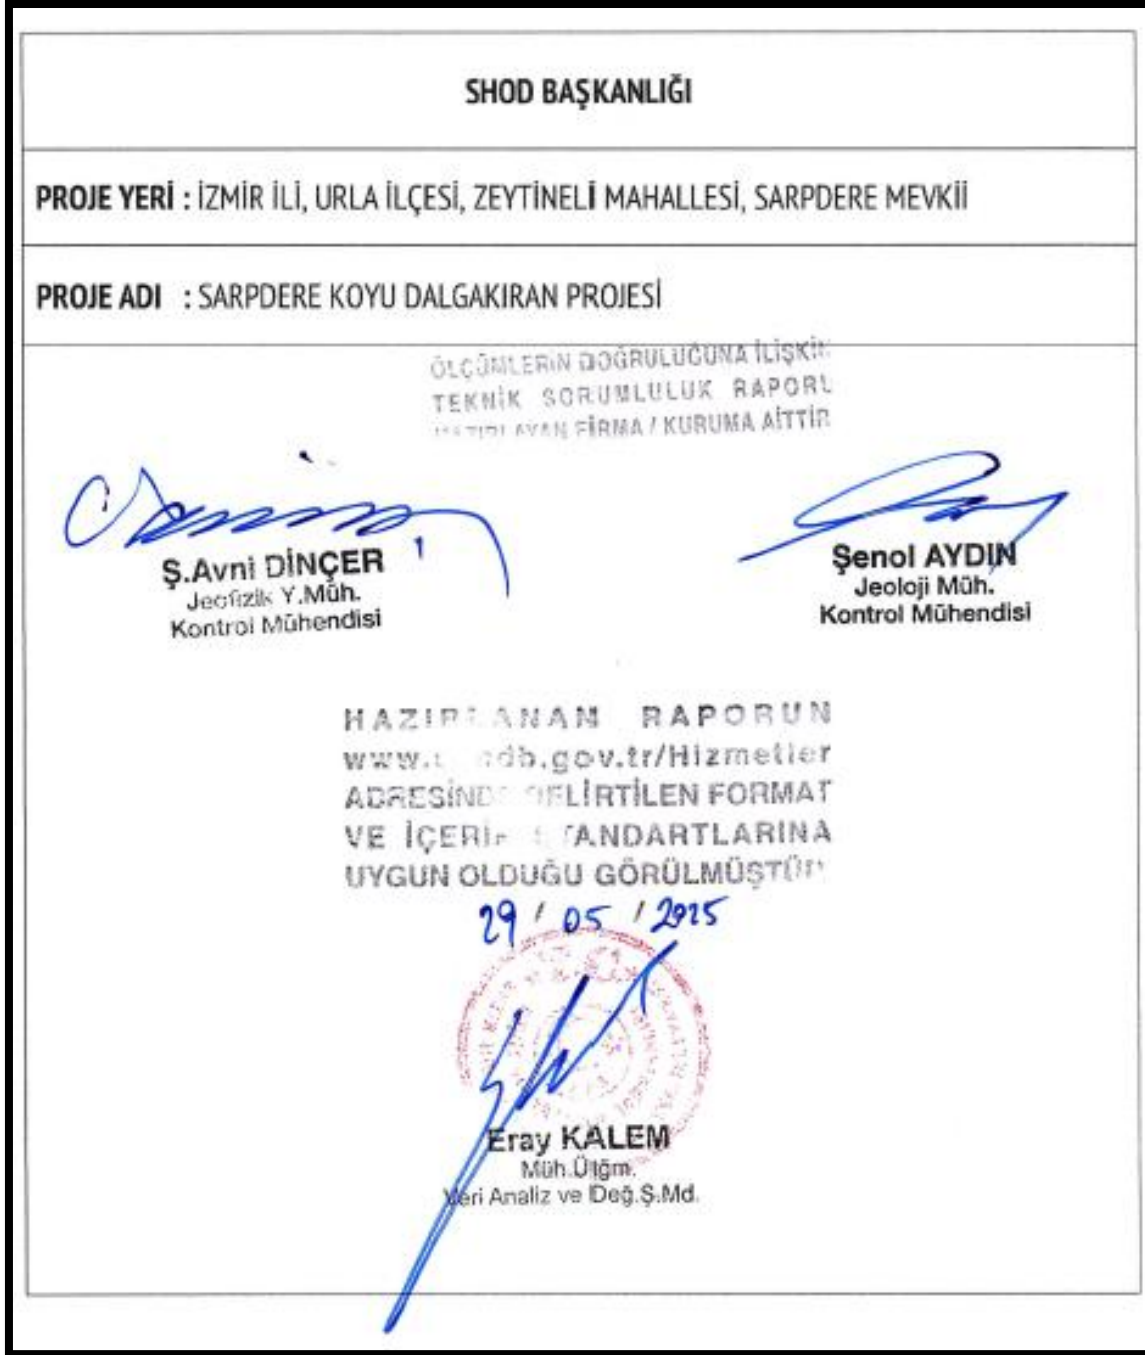 SHOD BAŞKANLIĞI
PROJE YERİ : İZMİR İLİ, URLA İLÇESİ, ZEYTİNELİ MAHALLESİ, SARPDERE MEVKİİ
PROJE ADI : SARPDERE KOYU DALGAKIRAN PROJESİ
ÖLÇÜMLERİN DOĞRULUĞUNA İLİŞKİN
TEKNİK SORUMLULUK RAPORU
FİRMA / KURUMA AİTTİR
Ş.Avni DİNÇER
Jeofizik Y.Müh.
Kontrol Mühendisi
Şenol AYDIN
Jeoloji Müh.
Kontrol Mühendisi
HAZIRLANAN RAPORUN
ADRESİNDE BELİRTİLEN FORMAT
VE İÇERİK STANDARTLARINA
UYGUN OLDUĞU GÖRÜLMÜŞTÜR
29 / 05 / 2025
Eray KALEM
Müh.Ütğm.
Veri Analiz ve Değ.Ş.Md.